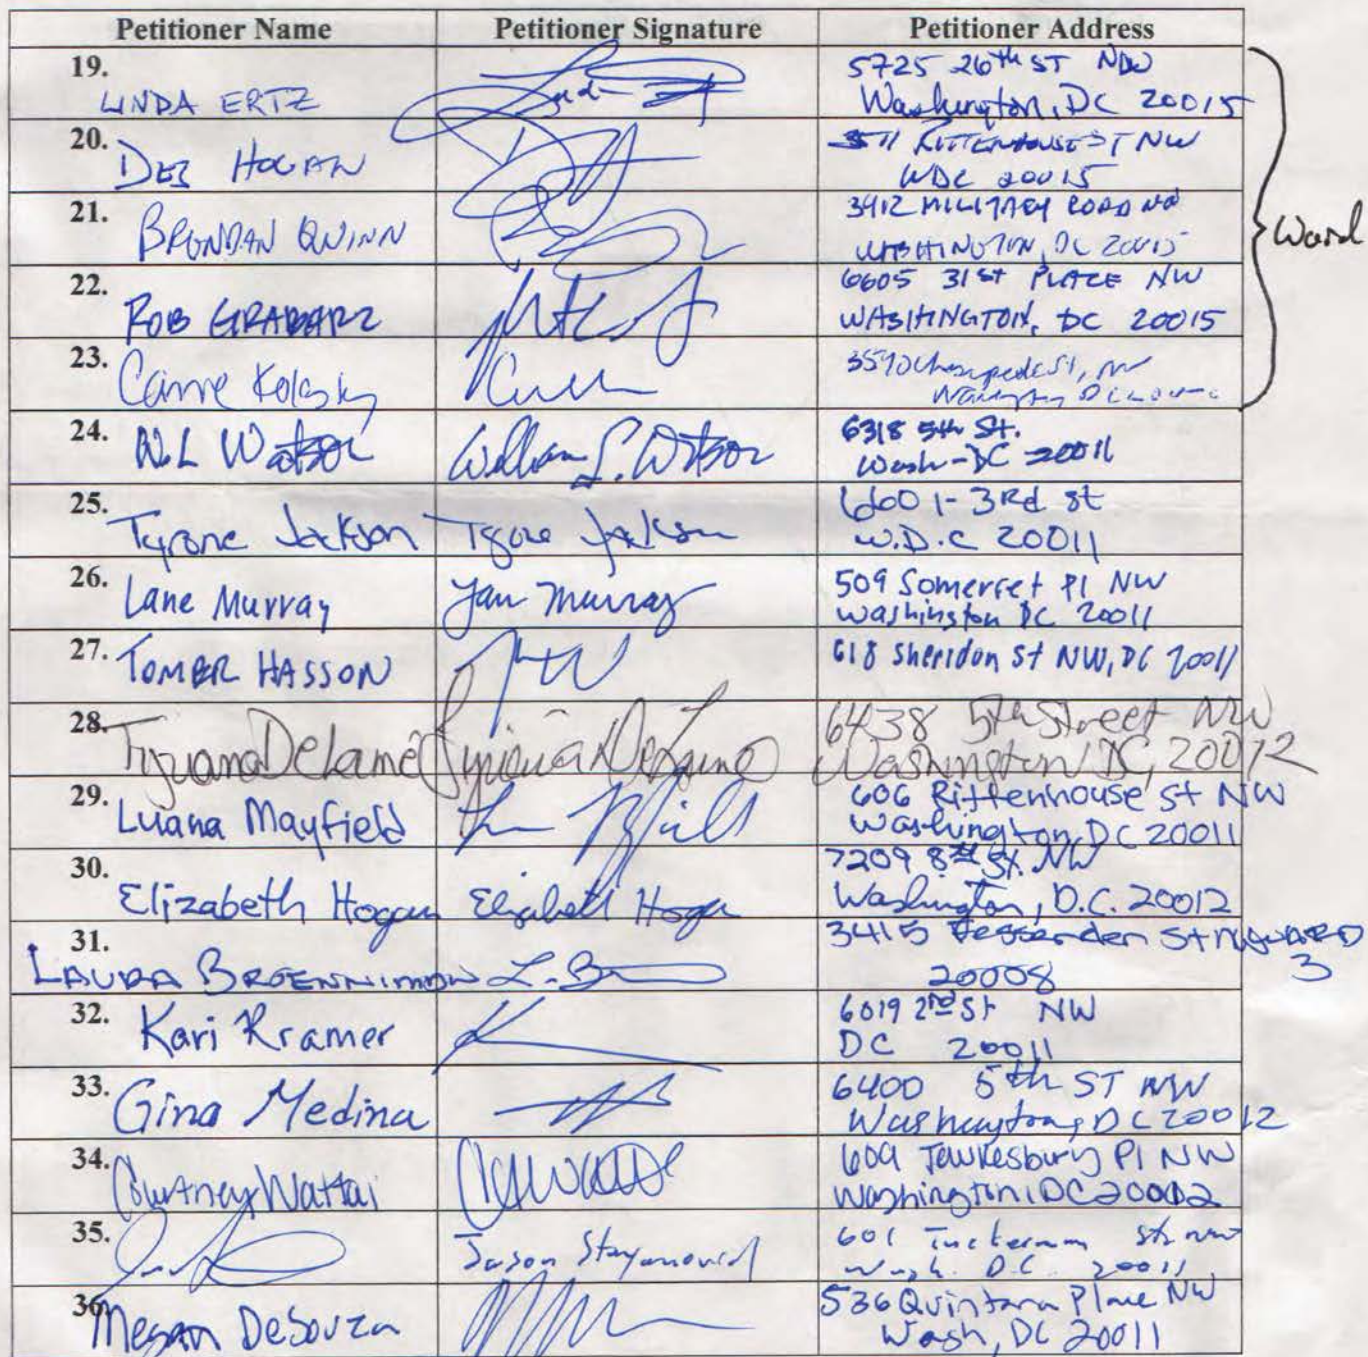 Petitioner Name Petitioner Signature Petitioner Address
19.
LINDA ERTZ
5725 26th ST NW
Washington, DC 20015
20.
DEZ HOGAN
3511 RITTENHOUSE ST NW
WDC 20015
21.
BRENDAN QUINN
3412 MILITARY ROAD NW
WASHINGTON, DC 20015
22.
ROB GRABARZ
6605 31st PLACE NW
WASHINGTON, DC 20015
Ward
23.
Carrie Kolasky
24.
Watson William L. Watson
6318 5th St.
Wash-DC 20011
25.
Tyrone Jackson Tyrone Jackson
6601-3Rd st
W.D.C 20011
26.
Lane Murray Murray
509 Somerset Pl NW
Washington DC 20011
27.
TOMER HASSON
618 Sheridan St NW, DC 20011
28.
6438 5th Street NW
Washington DC, 20012
29.
Luana Mayfield
606 Rittenhouse St NW
Washington, DC 20011
30.
Elizabeth Hogan Elizabeth Hogan
7209 8th St. NW
Washington, D.C. 20012
31.
LAURA BROENNIMAN L. B
3415 Fessenden St NW WARD
20008 3
32.
Kari Kramer
6019 2nd St NW
DC 20011
33.
Gina Medina
6400 5th ST NW
Washington, DC 20012
34.
Courtney Wattai
609 Tewkesbury Pl NW
Washington, DC 20012
35.
Jason Stoyanovich
601 Tuckerman St. NW
Wash. D.C. 20011
36.
Megan DeSouza
536 Quintana Place NW
Wash, DC 20011